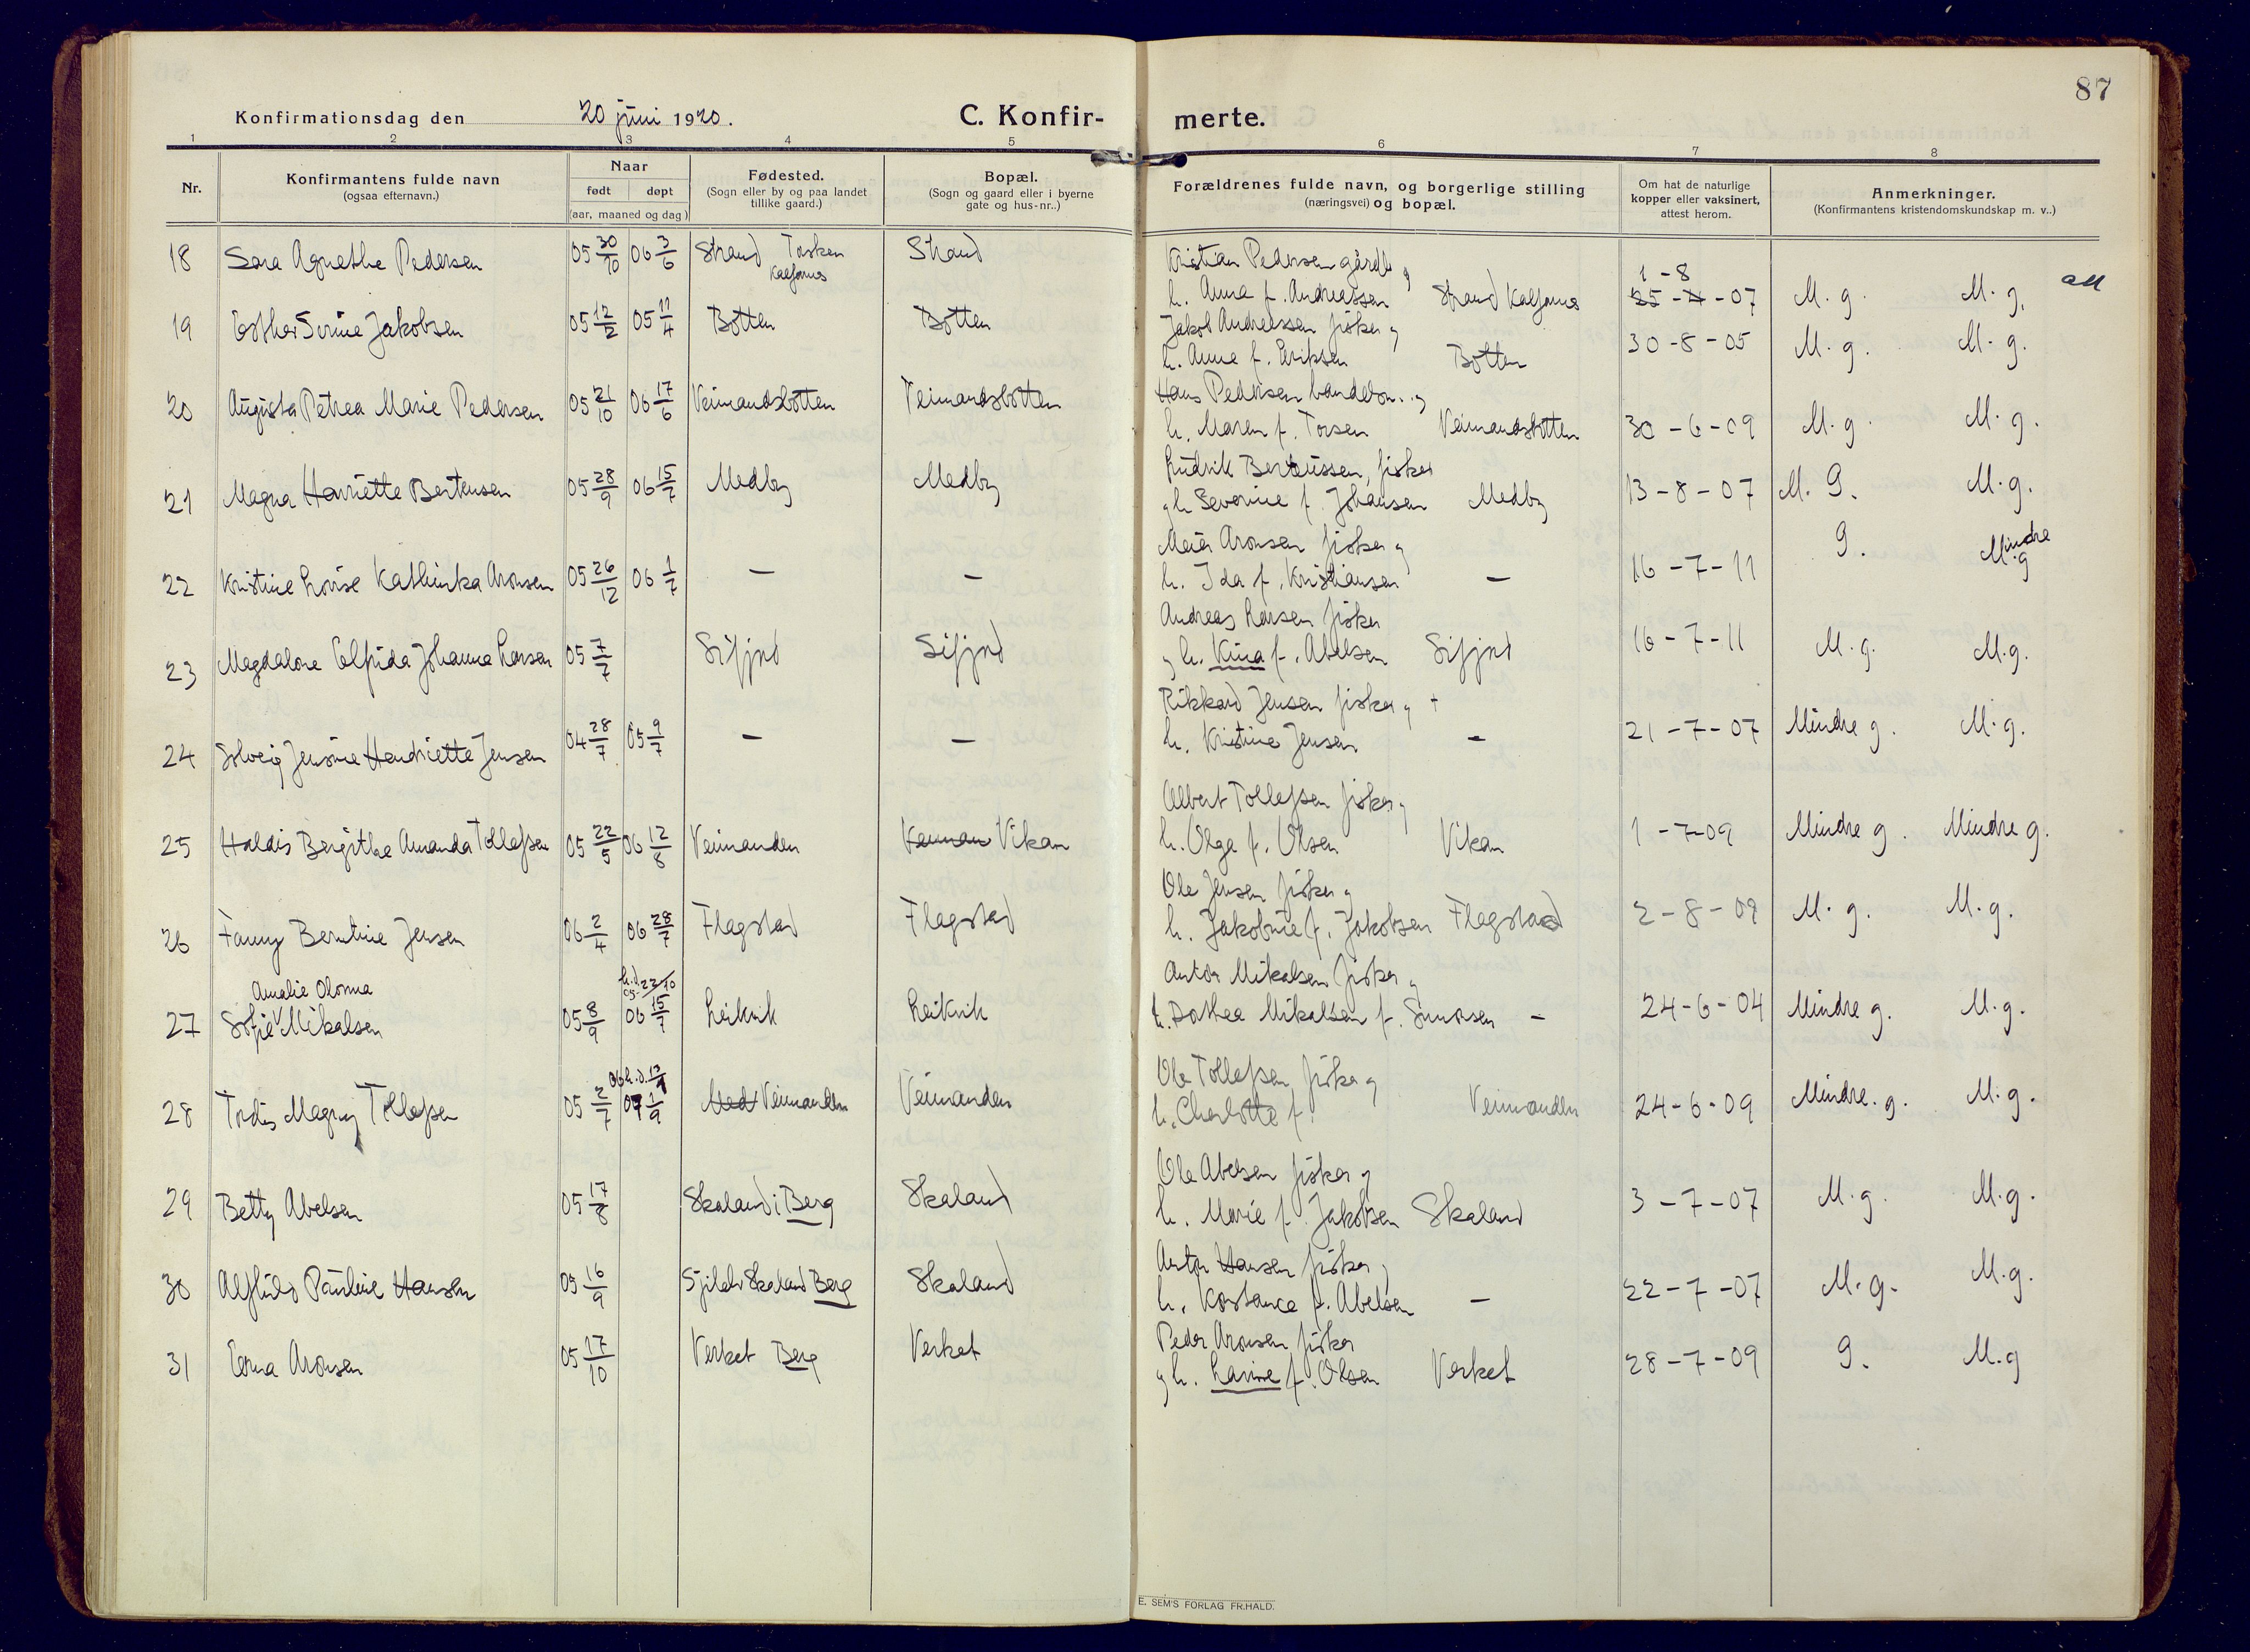 87
Konfirmationsdag den 20 juni 1920.
C. Konfir-
merte.
1 2 3 4 5 6 7 8
Nr.
Konfirmantens fulde navn
(ogsaa efternavn.)
Naar
født døpt
(aar, maaned og dag)
Fødested.
(Sogn eller by og paa landet
tillike gaard.)
Bopæl.
(Sogn og gaard eller i byerne
gate og hus-nr..)
Forældrenes fulde navn, og borgerlige stilling
(næringsvei) og bopæl.
Om hat de naturlige
kopper eller vaksinert,
attest herom.
Anmerkninger.
(Konfirmantens kristendomskundskap m. v..)
18 Sara Agnethe Pedersen 05 30/10 06 3/6 Strand Torsken Strand
Kristian Pedersen gårdb. og
h. Anna f. Andreassen Strand 1-8 25-11-07 M.g. M.g.
19 Esther Serine Jakobsen 05 12/2 05 11/4 Botten Botten
Jakob Andreassen fisker og
h. Anne f. Eriksen Botten 30-8-05 M.g. M.g.
20 Augusta Petrea Marie Pedersen 05 21/10 06 17/6 Veimandsbotten Veimandsbotten
Hans Pedersen og
h. Maren f. Torsen Veimandsbotten 30-6-09 M.g. M.g.
21 Magna Harriette Berteusen 05 28/9 06 15/7 Medby Medby
Ludvik Berteussen, fisker
og h. Severine f. Johansen Medby 13-8-07 M.G. M.g.
22 Kristine Lovise Kathinka Aronsen 05 26/12 06 1/7 — —
Meier Aronsen fisker og
h. Ida f. Kristiansen — 16-7-11 G. Mindre g
23 Magdalone Elfrida Johanna Larsen 05 7/7 Sifjord Sifjord
Andreas Larsen fisker
og h. Kina f. Abelsen Sifjord 16-7-11 M.g. M.g.
24 Solveig Jensine Hendriette Jensen 04 28/7 05 9/7 — —
Rikkard Jensen fisker og +
h. Kristine Jensen — 21-7-07 Mindre g. M.g.
25 Haldis Bergithe Amanda Tollefsen 05 22/5 06 12/8 Veimanden Veiman Vikan
Albert Tollefsen fisker og
h. Olga f. Olsen Vikan 1-7-09 Mindre g. Mindre g.
26 Fanny Berntine Jensen 06 2/4 06 28/7 Flagstad Flagstad
Ole Jensen fisker og
h. Jakobine f. Jakobsen Flagstad 2-8-09 M.g. M.g.
Amalie Olonna
27 Sofie Mikalsen 05 8/9 h.d. 05-22/10 06 15/7 Leikvik Leikvik
Anton Mikalsen fisker og
h. Dorthea Mikalsen f. Simonsen — 24-6-04 Mindre g. M.g.
28 Tordis Magny Tollefsen 05 2/7 1/9 Med Veimanden Veimanden
Ole Tollefsen fisker og
h. Charlotte f. Veimanden 24-6-09 Mindre g. M.g.
29 Betty Abelsen 05 17/8 Skaland i Berg Skaland
Ole Abelsen fisker og
h. Marie f. Jakobsen Skaland 3-7-07 M.g. M.g.
30 Alfhild Pauline Hansen 05 16/9 Skaland Berg Skaland
Anton Hansen fisker og
h. Konstance f. Abelsen — 22-7-07 M.g. M.g.
31 Erna Aronsen 05 17/10 Verket Berg Verket
Peder Aronsen fisker
og h. Lavine f. Olsen Verket 28-7-09 G. M.g
E. SEM'S FORLAG FR.HALD.